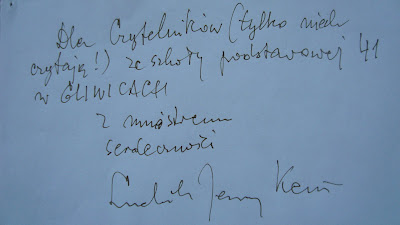 Dla Czytelników (tylko niech
czytają!) ze szkoły podstawowej 41
w GLIWICACH
z
serdeczności
Ludwik Jerzy Kern